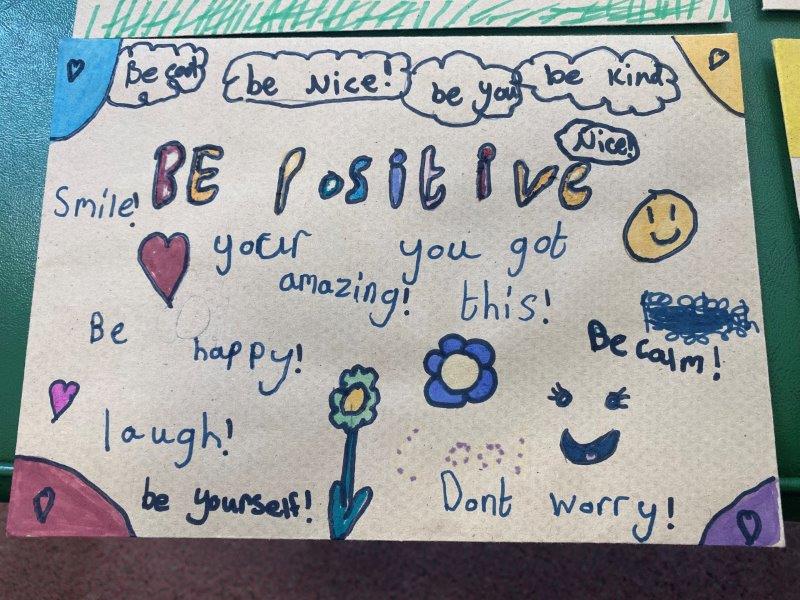 Be cool
be Nice!
be you
be kind
Nice!
BE Positive
Smile!
your amazing!
you got this!
Be happy!
Be calm!
laugh!
be yourself!
Dont worry!